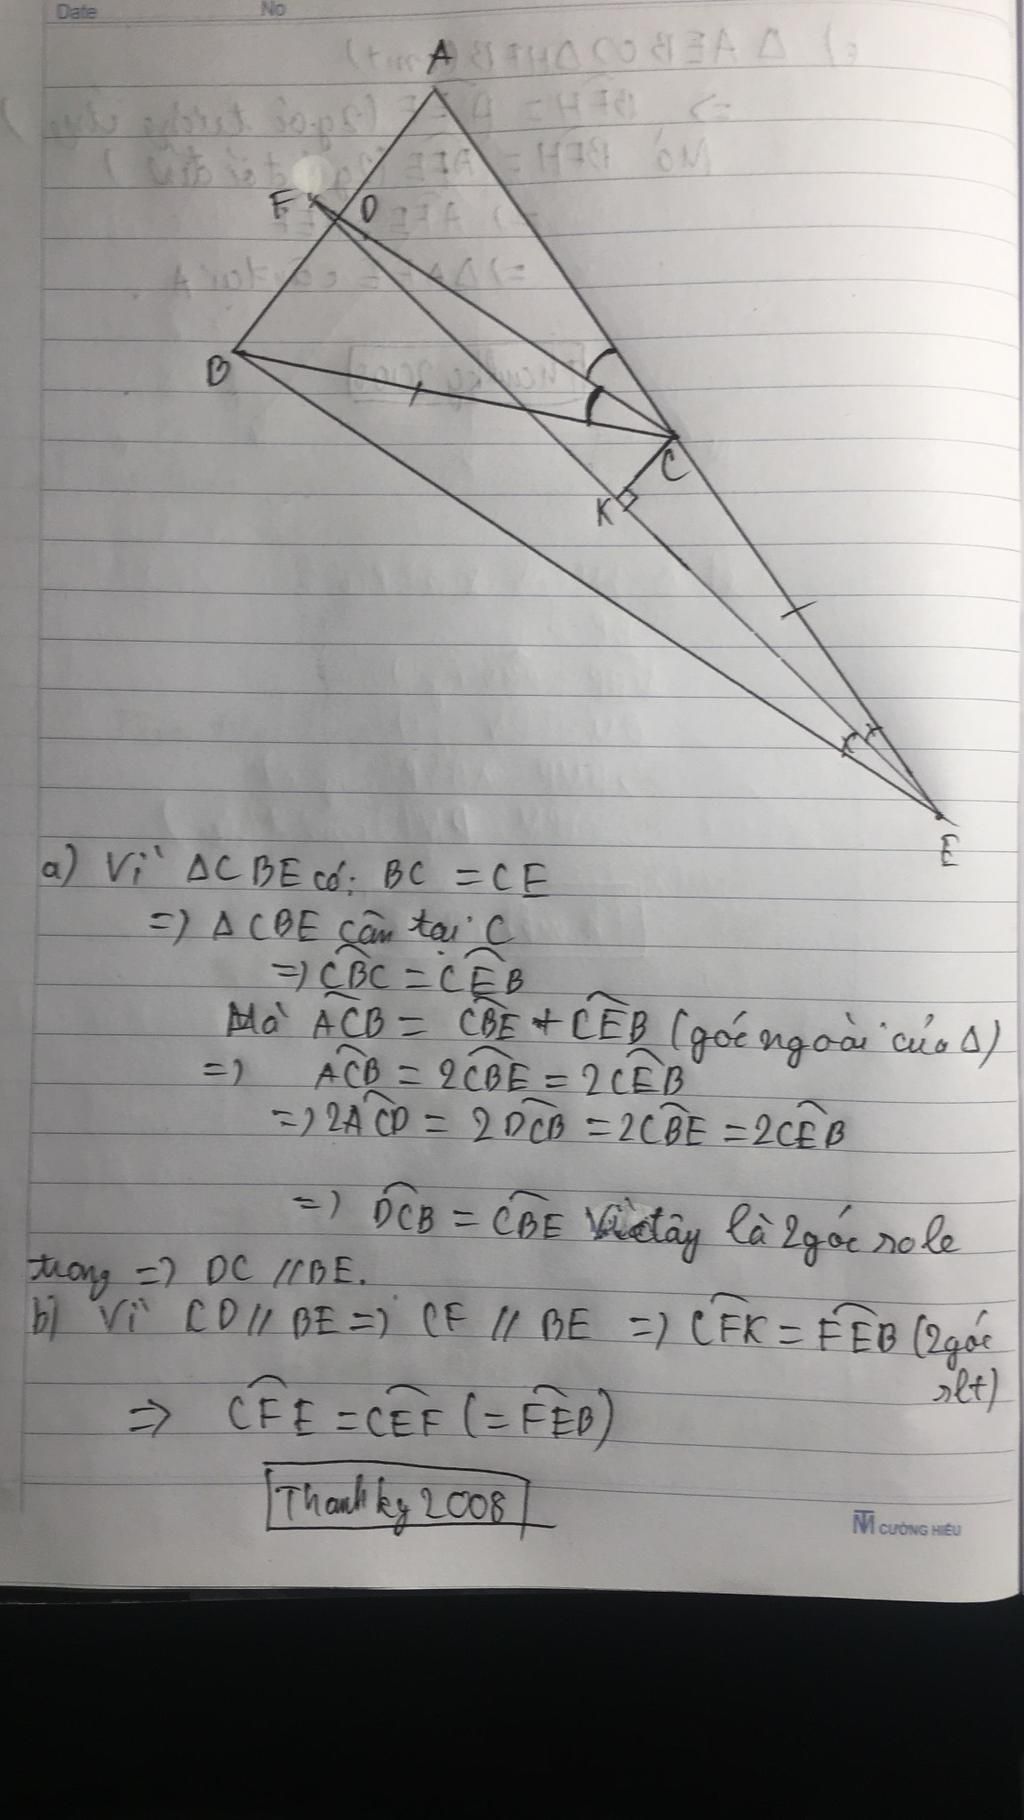 Date No
A
F
D
B
C
K
E
a) Vì ΔCBE có: BC = CE
=> ΔCBE cân tại C
=> CBC = CEB
Mà ACB = CBE + CEB (góc ngoài của Δ)
=> ACB = 2CBE = 2CEB
=> 2ACD = 2DCB = 2CBE = 2CEB
=> DCB = CBE Vì đây là 2 góc sole
trong => DC // BE.
b) Vì CD // BE => CF // BE => CFK = FEB (2 góc
slt)
=> CFE = CEF (= FEB)
Thanhky2008
TM CƯỜNG HIẾU